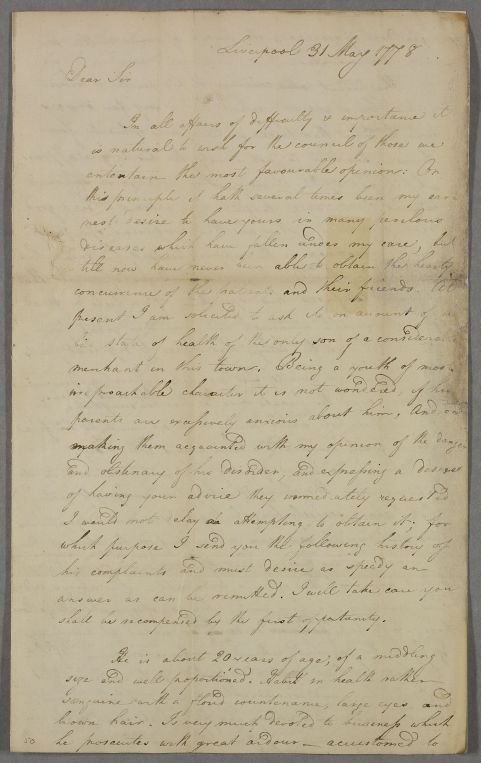 Liverpool 31 May 1778.
Dear Sir
In all affairs of difficulty & importance it
is natural to wish for the council of those we
entertain the most favourable opinion: On
this principle it hath several times been my ear
nest desire to have yours in many perilous
diseases which have fallen under my care, but
till now have never been able to obtain the hearty
concurrence of the patients and their friends. At
present I am solicited to ask it on account of
state of health of the only son of a considerable
merchant in this town. Being a youth of most
irreproachable character it is not wondered if his
parents are excessively anxious about him, And on
making them acquainted with my opinion of the danger
and obstinacy of his disorder, and expressing a desire
of having your advice they immediately requested
I would not delay attempting to obtain it; for
which purpose I send you the following history of
his complaints and must desire as speedy an
answer as can be remitted. I will take care you
shall be recompensed by the first opportunity.
He is about 20 years of age; of a middling
size and well proportioned. Habit in health rather
sanguine with a florid countenance, large eyes and
brown hair. Is very much devoted to business which
he prosecutes with great ardour – accustomed to
50